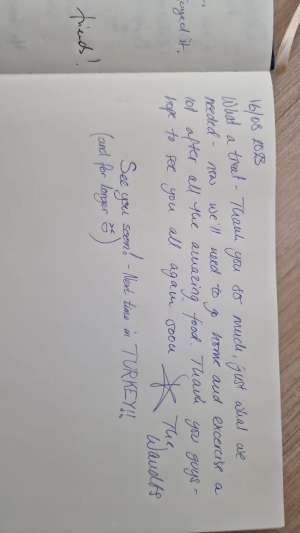 friends!
16/08 2023
What a treat - Thank you so much, just what we
needed - now we'll need to go home and excercise a
lot after all the amazing food. Thank you guys -
hope to see you all again soon
The
See you soon! - Next time in TURKEY!!
(and for longer)